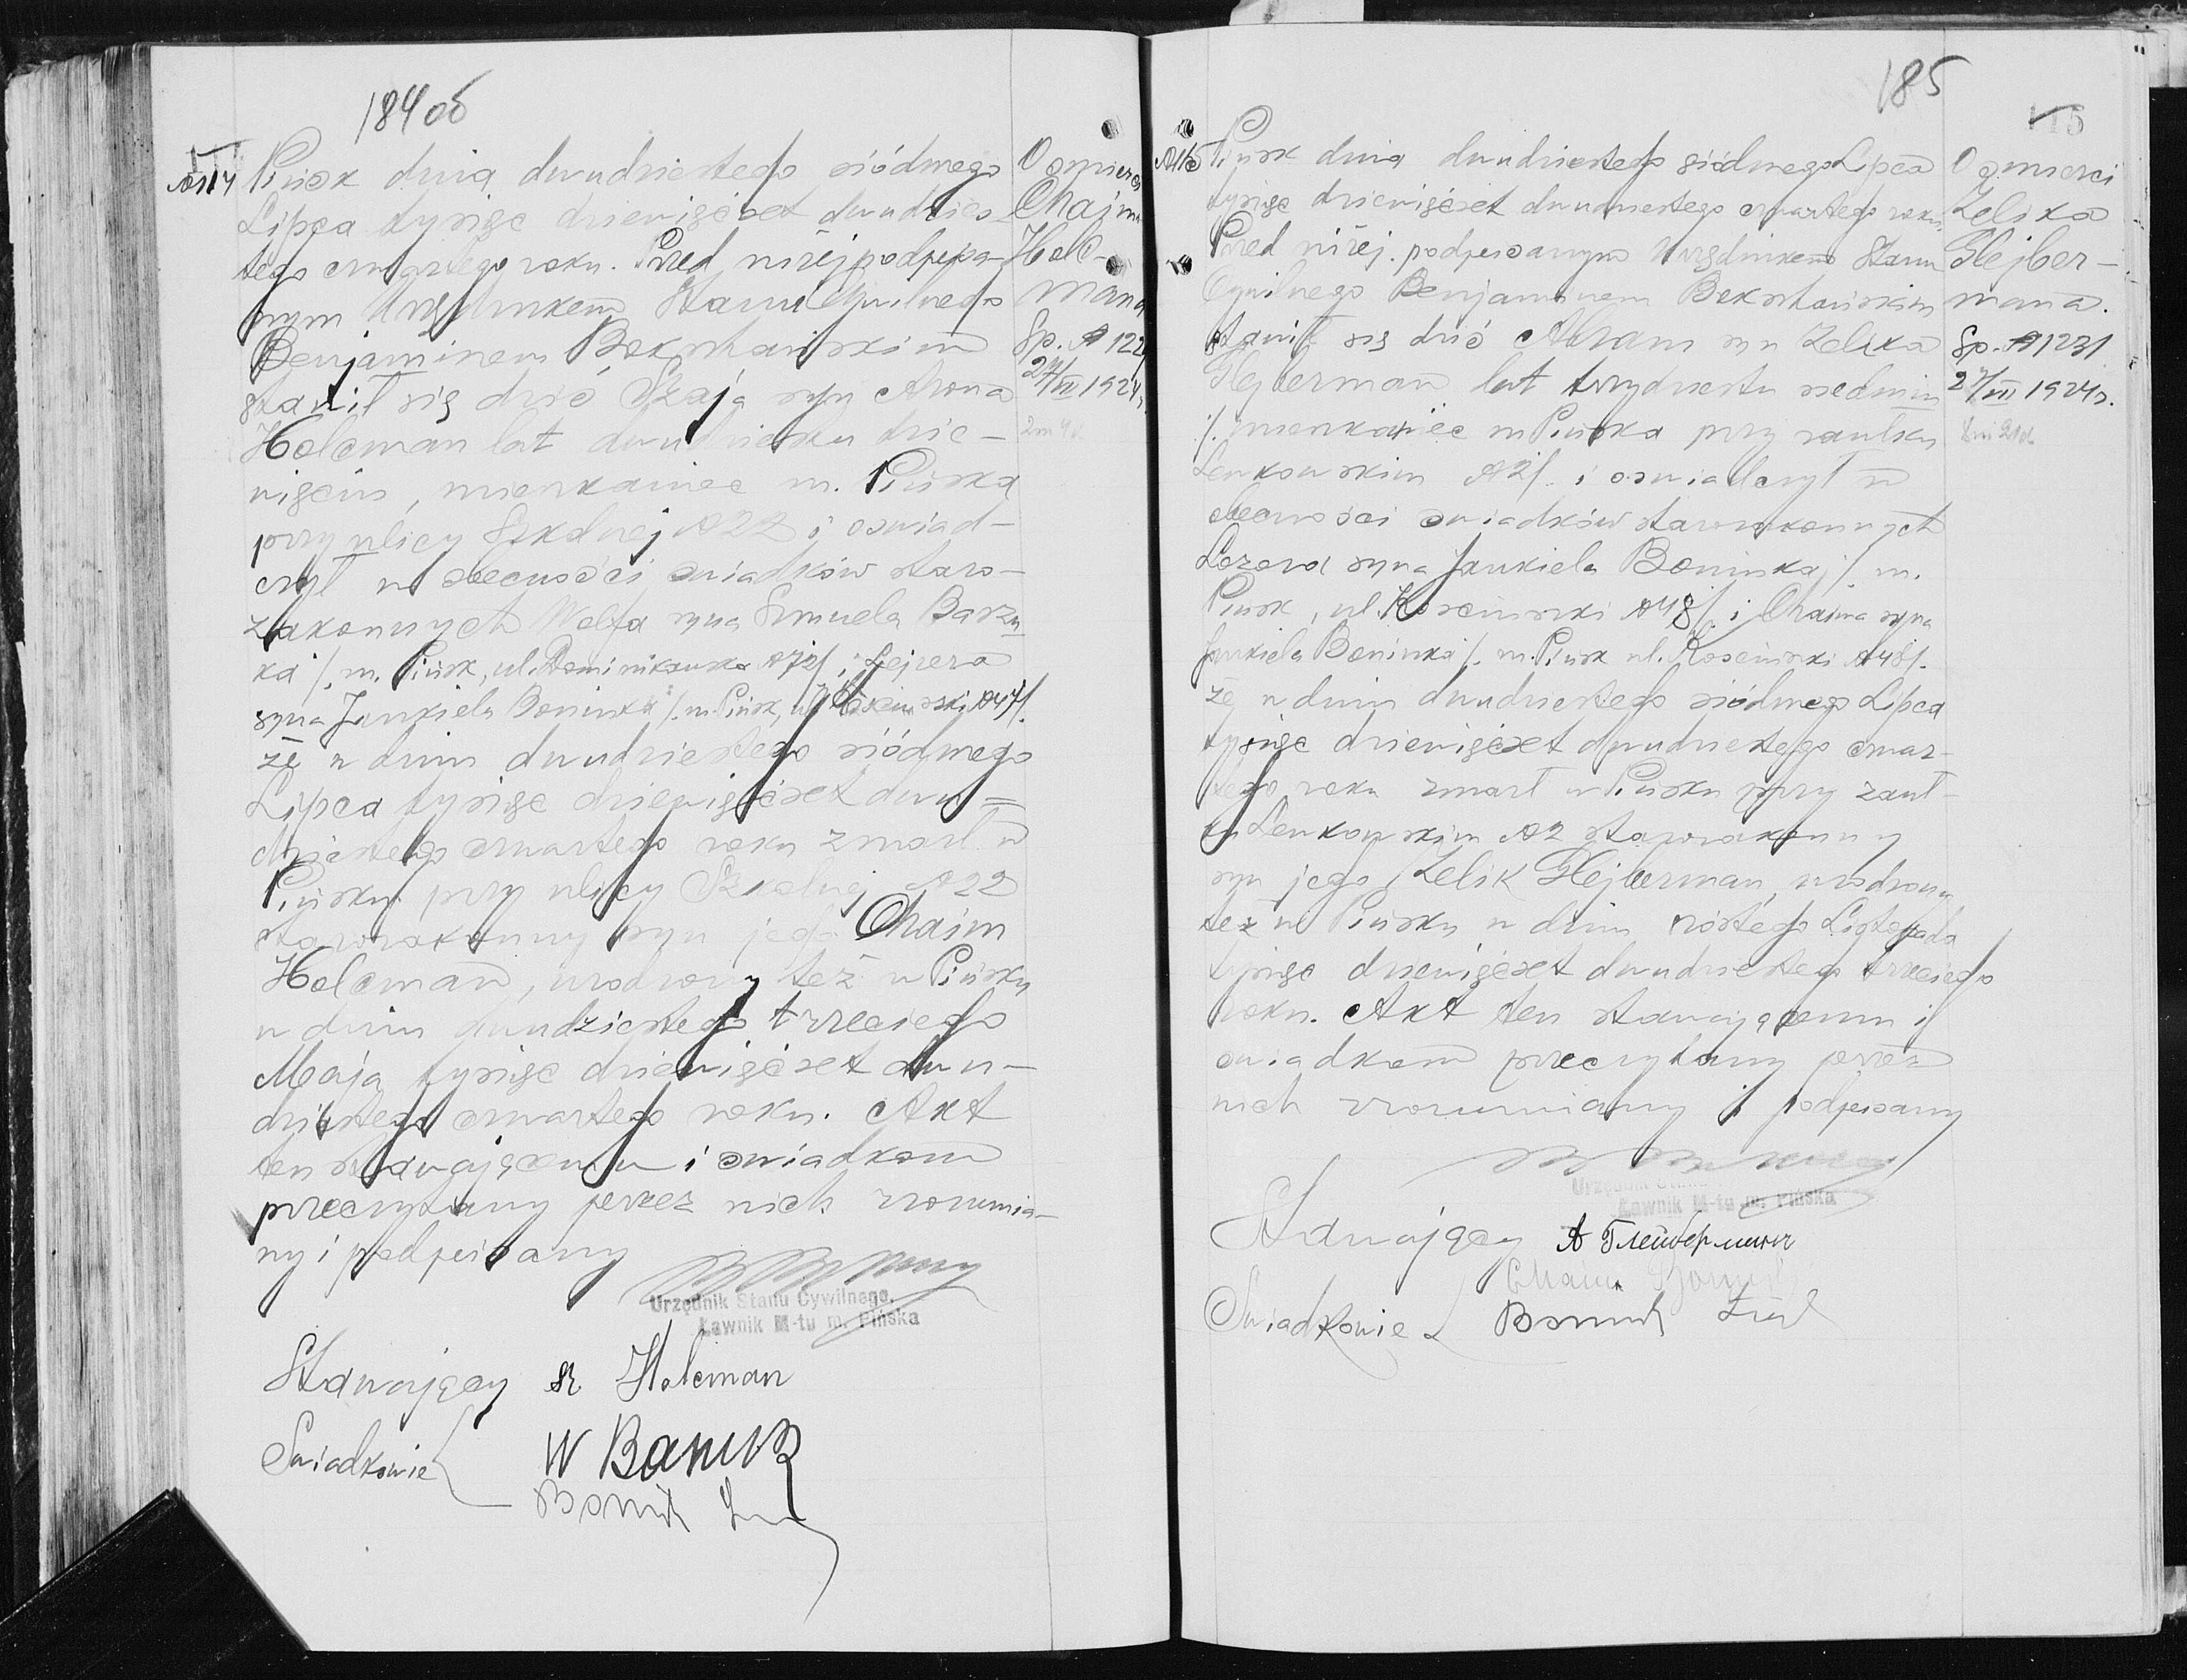 184 об
№ 114
Pińsk dnia dwudziestego siódmego
Lipca tysiąc dziewięćset dwudzies-
tego czwartego roku. Przed niżej podpisa-
nym Urzędnikem Stanu Cywilnego
Benjaminem Bokshańskim
stawił się dziś Szaja syn Arona
Holcman lat dwudziestu dzie-
więciu, mieszkaniec m. Pińska
przy ulicy Szkolnej № 22 i oświad-
czył w obecności świadków staro-
zakonnych Wolfa syna Szmuela Barzu-
ka /. m. Pińsk, ul. Dominikańska № 72/. i Lejzera
syna Jankiela Boninka /. m. Pińsk, ul. Kościuszki № 47/.
że w dniu dwudziestego siódmego
Lipca tysiąc dziewięćset dwu=
dziestego czwartego roku zmarł w
Pińsku przy ulicy Szkolnej № 22
starozakonny syn jego Chaim
Holcman, urodzony też w Pińsku
w dniu dwudziestego trzeciego
Maja tysiąc dziewięćset dwu-
dziestego czwartego roku. Akt
ten stawającemu i świadkom
przeczytany przez nich zrozumia-
ny i podpisany
Urzędnik Stanu Cywilnego,
Ławnik M-tu m. Pińska
Stawający Sz Holcman
Świadkowie W Barzuk
Bonik
O śmierci
Chajma
Holc-
mana
Sp. № 122
27/VII 1924
2m 4d
185
115
№ 115
Pińsk dnia dwudziestego siódmego Lipca
tysiąc dziewięćset dwudziestego czwartego roku.
Przed niżej podpisanym Urzędnikem Stanu
Cywilnego Benjaminem Bokshańskim
stawił się dziś Abram syn Zelika
Glejberman lat trzydziestu siedmiu
/. mieszkaniec m Pińska przy zaułku
Lenkowskim № 2/. i oświadczył w
obecności świadków starozakonnych
Lezera syna Jankiela Boninka /. m.
Pińsk, ul. Kościuszki № 48/. i Chaima syna
Jankiela Boninka /. m. Pińsk ul. Kościuszki № 48/.
że w dniu dwudziestego siódmego Lipca
tysiąc dziewięćset dwudziestego czwar-
tego roku zmarł w Pińsku przy zauł-
ku Lenkowskim № 2 starozakonny
syn jego Zelik Glejberman, urodzony
też w Pińsku w dniu szóstego Listopada
tysiąc dziewięćset dwudziestego trzeciego
roku. Akt ten stawającemu i
świadkom przeczytany przez
nich zrozumiany i podpisany
Ławnik M-tu m. Pińska
Stawający А Глейберман
Chaim
Świadkowie Bonik
O śmierci
Zelika
Glejber-
mana.
Sp. № 1231
27/VII 1924 r.
8m 21d